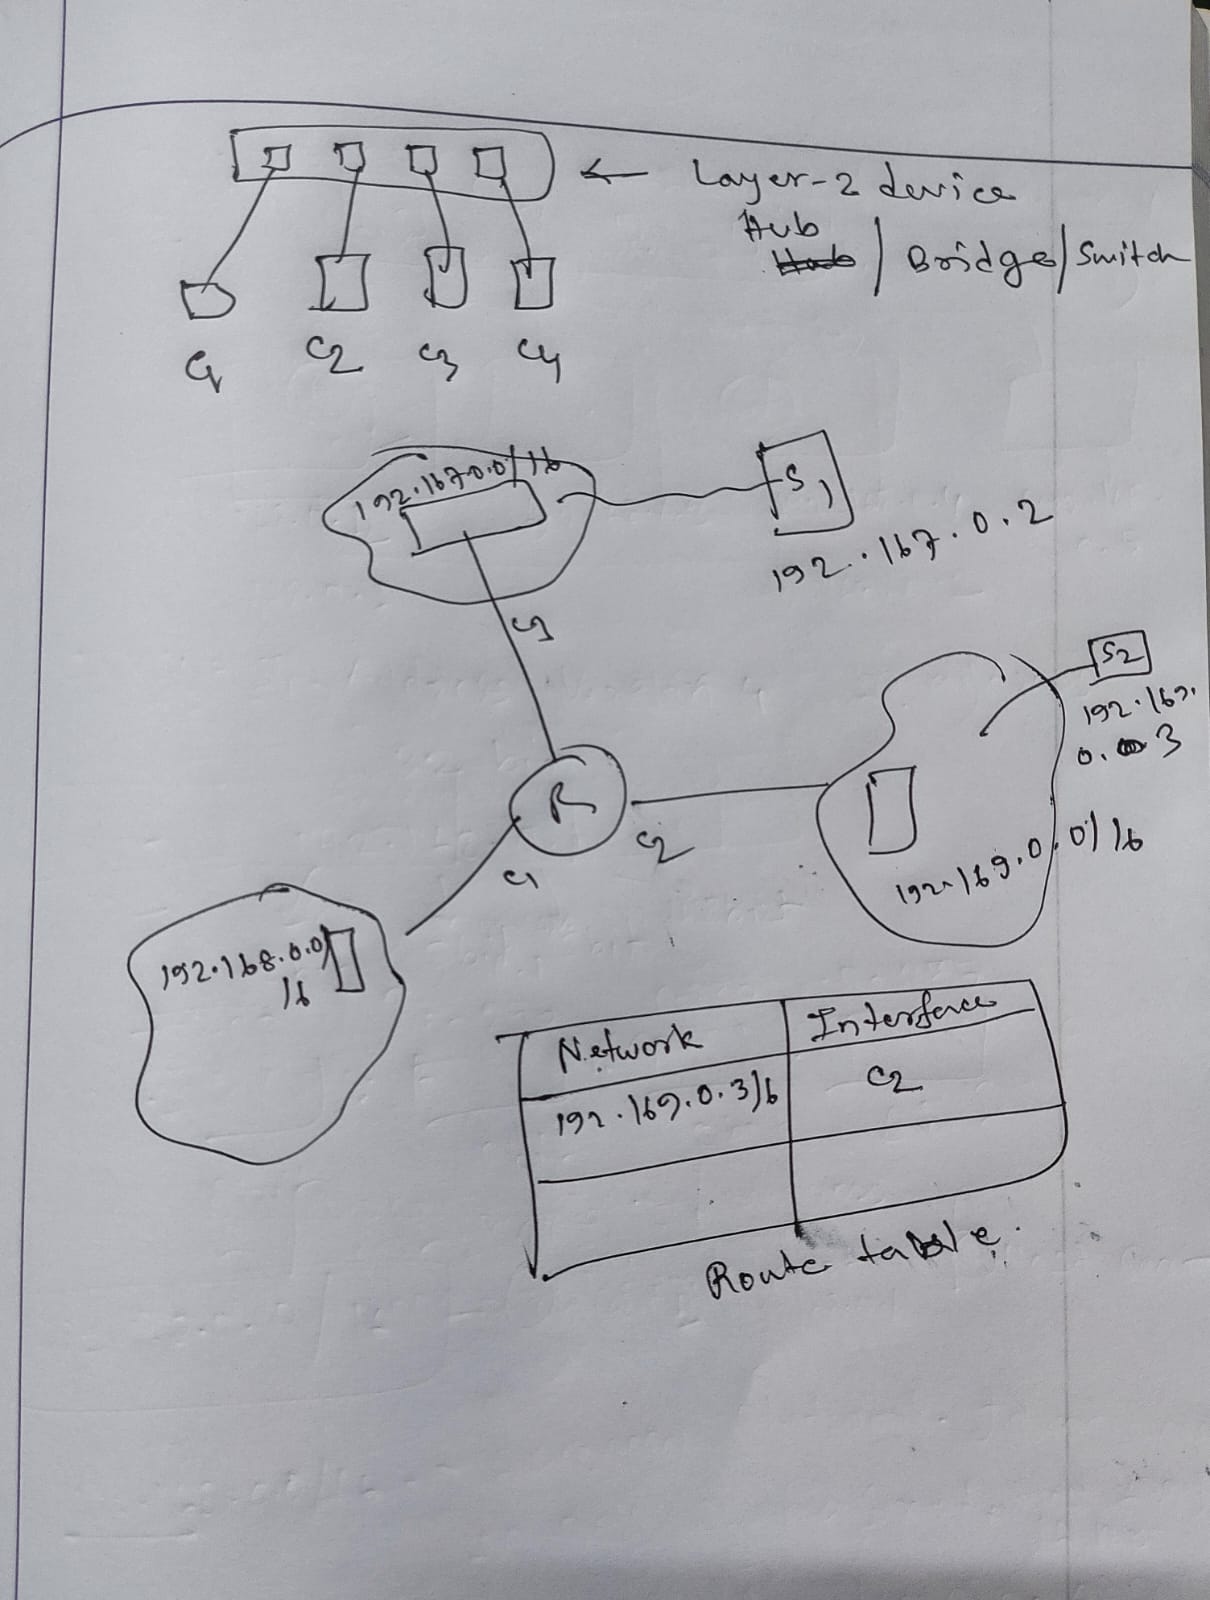 ← Layer-2 device
Hub
/ Bridge/Switch
C1 C2 C3 C4
192.167.0.0/16
S1
192.167.0.2
C3
S2
192.169.
0.3
R
C2
C1
192.169.0.0/16
192.168.0.0/
16
Network Interface
192.169.0.3/16 C2
Route table.